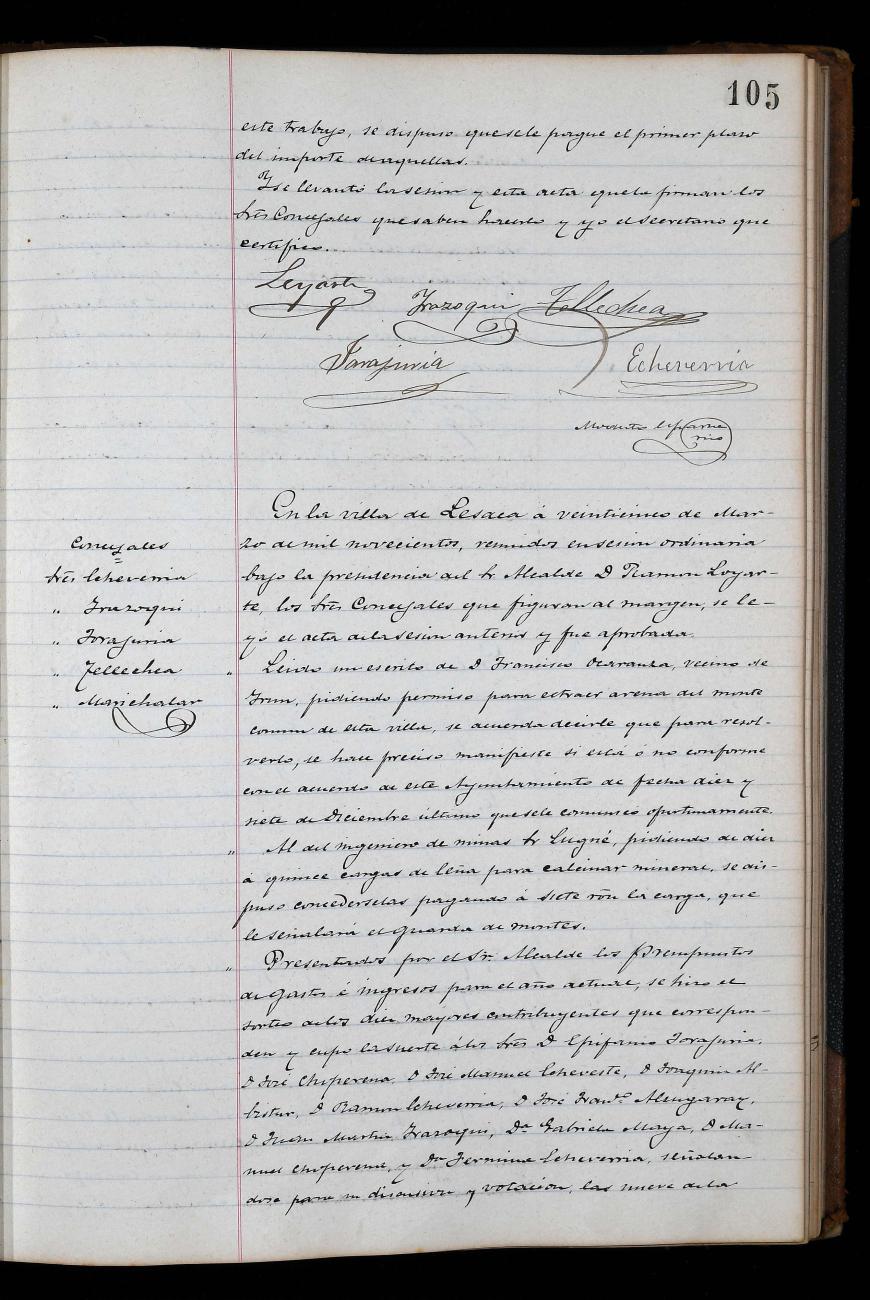 105
este trabajo, se dispuso que se le pague el primer plazo
del importe de aquellas.
Y se levantó la sesión y esta acta que la firman los
Srês Concejales que saben hacerlo y yo el Secretario que
certifico.
Loyarte
Irazoqui Tellechea
Torajuria Echeverria
Modesto
En la villa de Lesaca á veinticinco de Mar-
zo de mil novecientos, reunidos en sesion ordinaria
bajo la presidencia del Sr Alcalde D Ramon Loyar-
te, los Srês Concejales que figuran al margen, se le-
yó el acta de la sesion anterior y fue aprobada.
Concejales
Srês Echeverria
" Irazoqui
" Torajuria
" Tellechea
" Marichalar
" Leido un escrito de D Francisco Ocaranza, vecino de
Irun, pidiendo permiso para extraer arena del monte
comun de esta villa, se acuerda decirle que para resol-
verlo, se hace preciso manifieste si está ó no conforme
con el acuerdo de este Ayuntamiento de fecha diez y
siete de Diciembre último que se le comunicó oportunamente.
" Al del ingeniero de minas Sr Lugné, pidiendo de diez
á quince cargas de leña para calcinar mineral, se dis-
puso concederselas pagando á siete rôn la carga, que
le señalará el guarda de montes.
" Presentados por el Sr. Alcalde los Presupuestos
de gastos é ingresos para el año actual, se hizo el
sorteo de los diez mayores contribuyentes que correspon-
den y cupo la suerte á los Srês D Epifanio Torajuria,
D José Chiperena, D José Manuel Echeveste, D Joaquin Al-
bistur, D Ramon Echeverria, D José Franco. Alzugaray,
D Juan Martin Irazoqui, Da Gabriela Maya, D Ma-
nuel Chiperena, y Da Fermina Echeverria, señalan-
dose para su discusion y votacion, las nueve de la